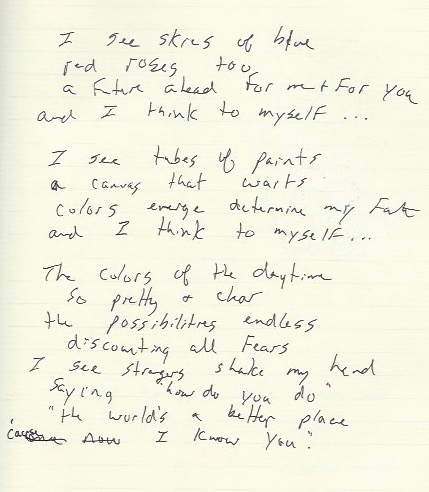 I see skies of blue
red roses too
a future ahead for me + for you
and I think to myself ...
I see tubes of paints
a canvas that waits
colors emerge determine my fate
and I think to myself...
The colors of the daytime
so pretty + clear
the possibilities endless
discounting all fears
I see strangers shake my hand
saying "how do you do"
"the world's a better place
"cause now I know you".